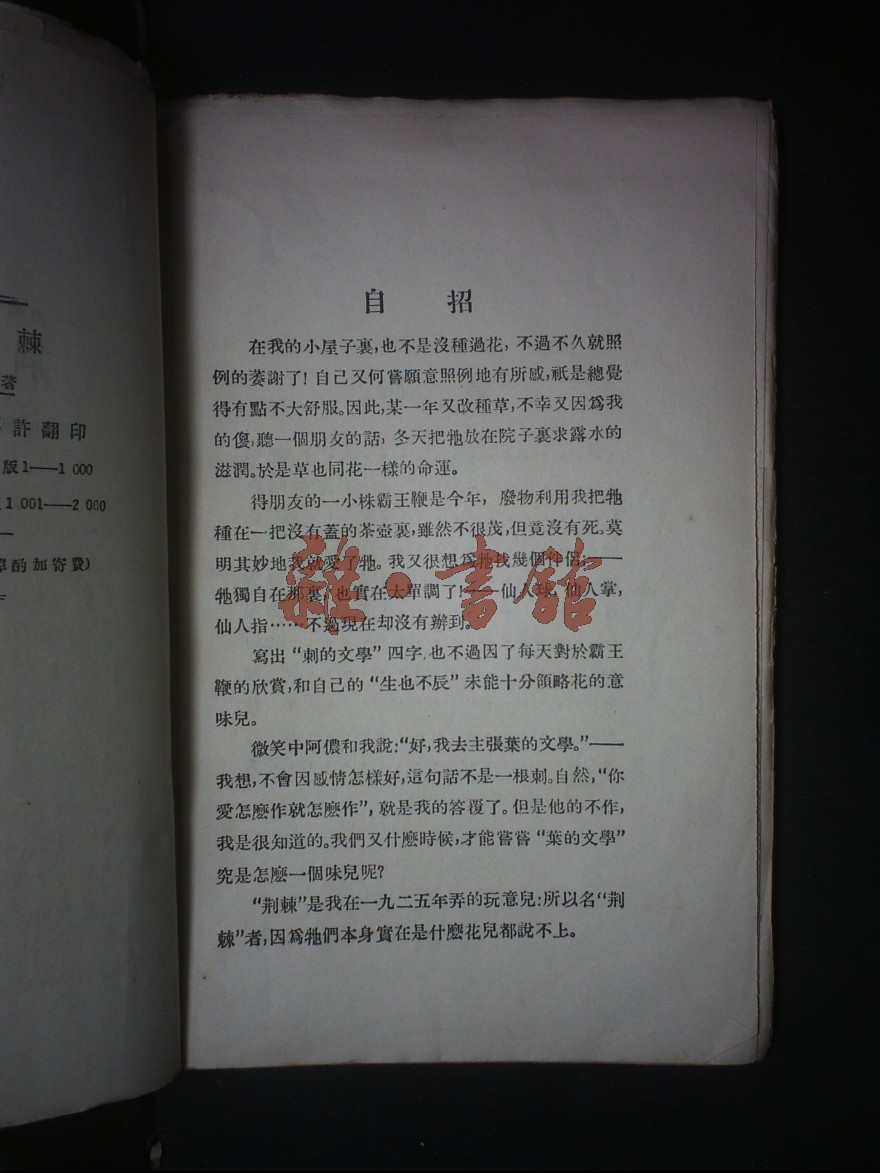 棘
著
許翻印
版1——1 000
1 001——2 000
酌加寄費)
自 招
在我的小屋子裏,也不是沒種過花, 不過不久就照
例的萎謝了! 自己又何嘗願意照例地有所感,祇是總覺
得有點不大舒服。因此,某一年又改種草,不幸又因爲我
的傻,聽一個朋友的話, 冬天把牠放在院子裏求露水的
滋潤。於是草也同花一樣的命運。
得朋友的一小株霸王鞭是今年, 廢物利用我把牠
種在一把沒有蓋的茶壺裏,雖然不很茂,但竟沒有死。莫
明其妙地我就愛了牠。我又很想爲牠找幾個伴侶,——
牠獨自在那裏, 也實在太單調了!——仙人球, 仙人掌,
仙人指……不過現在却沒有辦到。
寫出 “刺的文學” 四字, 也不過因了每天對於霸王
鞭的欣賞,和自己的 “生也不辰” 未能十分領略花的意
味兒。
微笑中阿儂和我說:“好,我去主張葉的文學。”——
我想,不會因感情怎樣好,這句話不是一根刺。自然,“你
愛怎麽作就怎麽作”, 就是我的答覆了。但是他的不作,
我是很知道的。我們又什麽時候,才能嘗嘗 “葉的文學”
究是怎麽一個味兒呢?
“荆棘”是我在一九二五年弄的玩意兒:所以名“荆
棘”者,因爲牠們本身實在是什麽花兒都說不上。
雜·書館